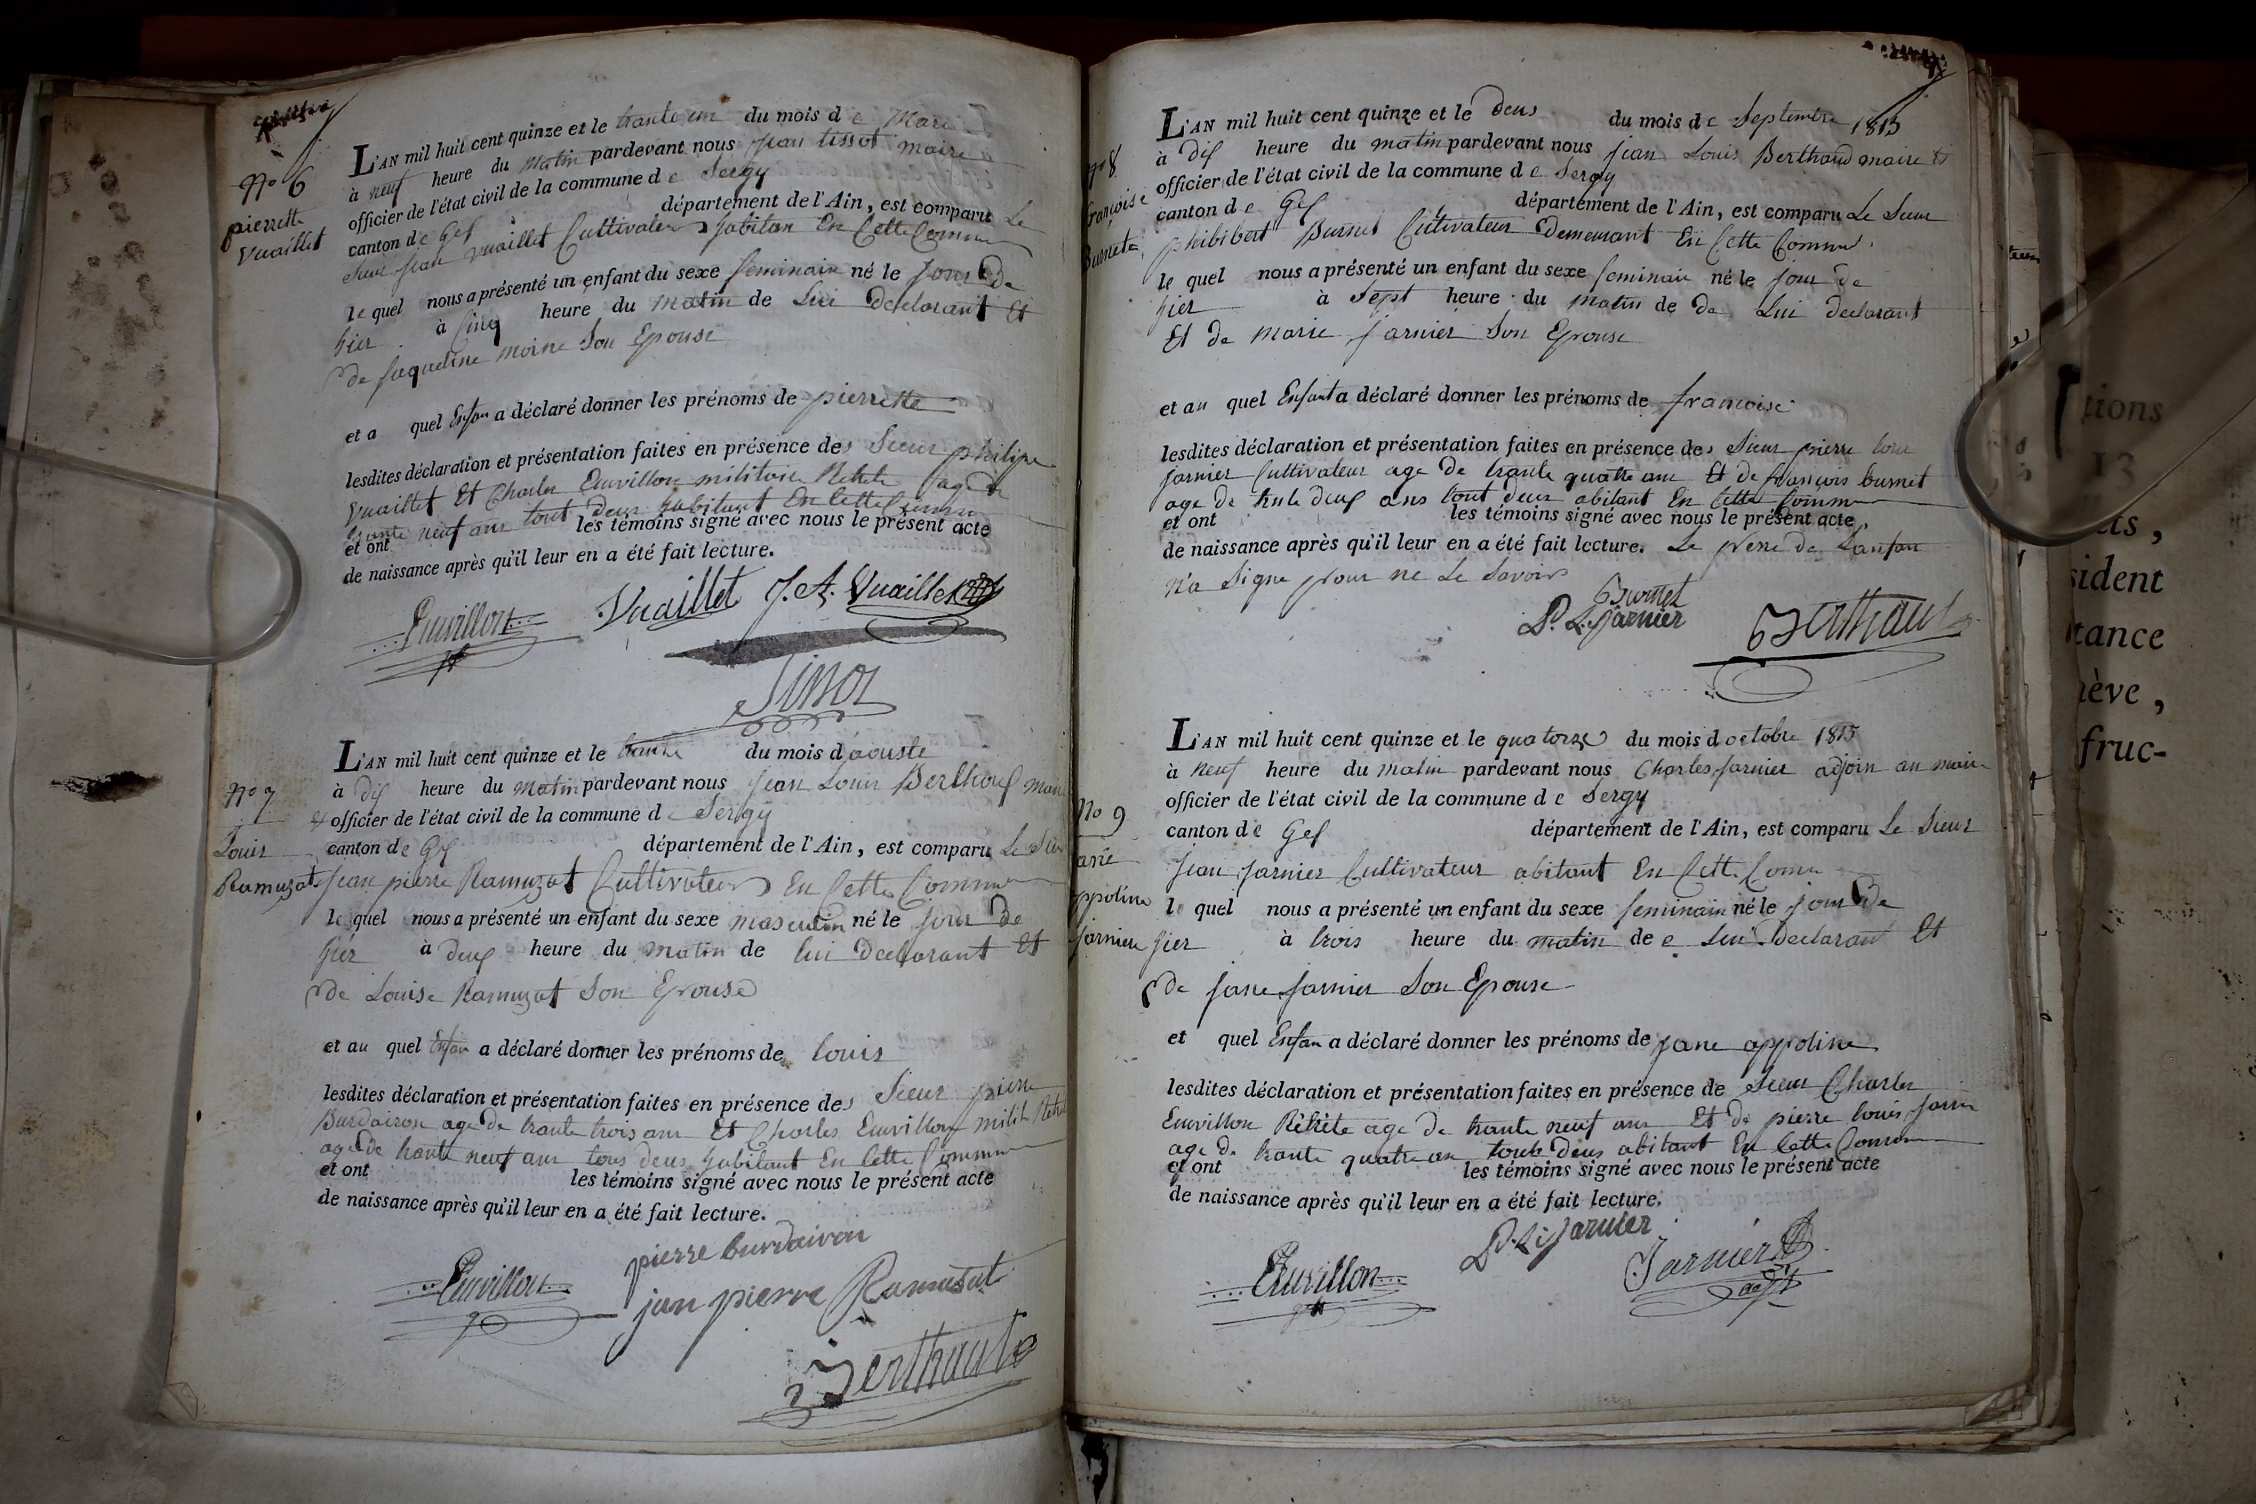 No 6
pierrette
Vuaillet
L'AN mil huit cent quinze et le trante un du mois de Mars
à neuf heure du matin pardevant nous jean tissot maire
officier de l'état civil de la commune de Sergy
canton de Gex département de l'Ain, est comparu Le
Sieur jean vuaillet Cultivateur habitan En Cette Commune
le quel nous a présenté un enfant du sexe feminain né le jour de
hier à Cinq heure du matin de Lui declarant Et
de jaqueline moine Son Epouse
et a quel Enfan a déclaré donner les prénoms de pierrette
lesdites déclaration et présentation faites en présence des Sieur philipe
Vuaillet Et Charles Emvillon militaire Retrete age de
trante neuf ans tout deux habitant En Cette Commune
et ont les témoins signé avec nous le présent acte
de naissance après qu'il leur en a été fait lecture.
Emvillon Vuaillet J. A. Vuaillet
Tissot
No 7
Louis
Ramuzat
L'AN mil huit cent quinze et le trante du mois d'aouste
à dix heure du matin pardevant nous jean Louis Berthoud maire
& officier de l'état civil de la commune de Sergy
canton de Gex département de l'Ain, est comparu Le Sieur
jean pierre Ramuzat Cultivateur En Cette Commune
le quel nous a présenté un enfant du sexe masculin né le jour de
hier à deux heure du matin de lui declarant Et
de Louise Ramuzat Son Epouse
et au quel Enfan a déclaré donner les prénoms de louis
lesdites déclaration et présentation faites en présence des Sieur pierre
Burdairon age de trante trois ans Et Charles Emvillon milit Retret
age de trante neuf ans tous deux habitant En Cette Commune
et ont les témoins signé avec nous le présent acte
de naissance après qu'il leur en a été fait lecture.
pierre burdairon
Emvillon
jan pierre Ramusat
Berthaud
No 8
françoise
Burnet
L'AN mil huit cent quinze et le deux du mois de Septembre 1815
à dix heure du matin pardevant nous jean Louis Berthaud maire &
officier de l'état civil de la commune de Sergy
canton de Gex département de l'Ain, est comparu Le Sieur
phibibert Burnet Cultivateur demeurant En Cette Commune
le quel nous a présenté un enfant du sexe feminain né le jour de
hier à Sept heure du matin de de Lui declarant
Et de marie jarnier Son Epouse
et au quel Enfant a déclaré donner les prénoms de francoise
lesdites déclaration et présentation faites en présence des Sieur pierre louis
jarnier Cultivateur age de trante quatre ans Et de françois burnet
age de trente deux ans tout deux abitant En Cette Commune
et ont les témoins signé avec nous le présent acte
de naissance après qu'il leur en a été fait lecture. Le pere de Lanfan
n'a Signe pour ne Le Savoir
Burnet
P. L. Jarnier Berthaud
No 9
appoline
jarnier
L'AN mil huit cent quinze et le quatorze du mois d octobre 1815
à neuf heure du matin pardevant nous Charles jarnier adjoin au maire
officier de l'état civil de la commune de Sergy
canton de Gex département de l'Ain, est comparu Le Sieur
jean jarnier Cultivateur abitant En Cette Comu
le quel nous a présenté un enfant du sexe feminain né le jour de
hier à trois heure du matin de e Lui Declarant Et
de jane jarnier Son Epouse
et quel Enfan a déclaré donner les prénoms de jane appoline
lesdites déclaration et présentation faites en présence de Sieur Charles
Emvillon Retrete age de trante neuf ans Et de pierre louis jarnier
age de trante quatre an touts deux abitant En Cette Commune
et ont les témoins signé avec nous le présent acte
de naissance après qu'il leur en a été fait lecture.
P. L. Jarnier
Emvillon Jarnier adjt
tions
13
ets,
sident
tance
nève,
fruc-